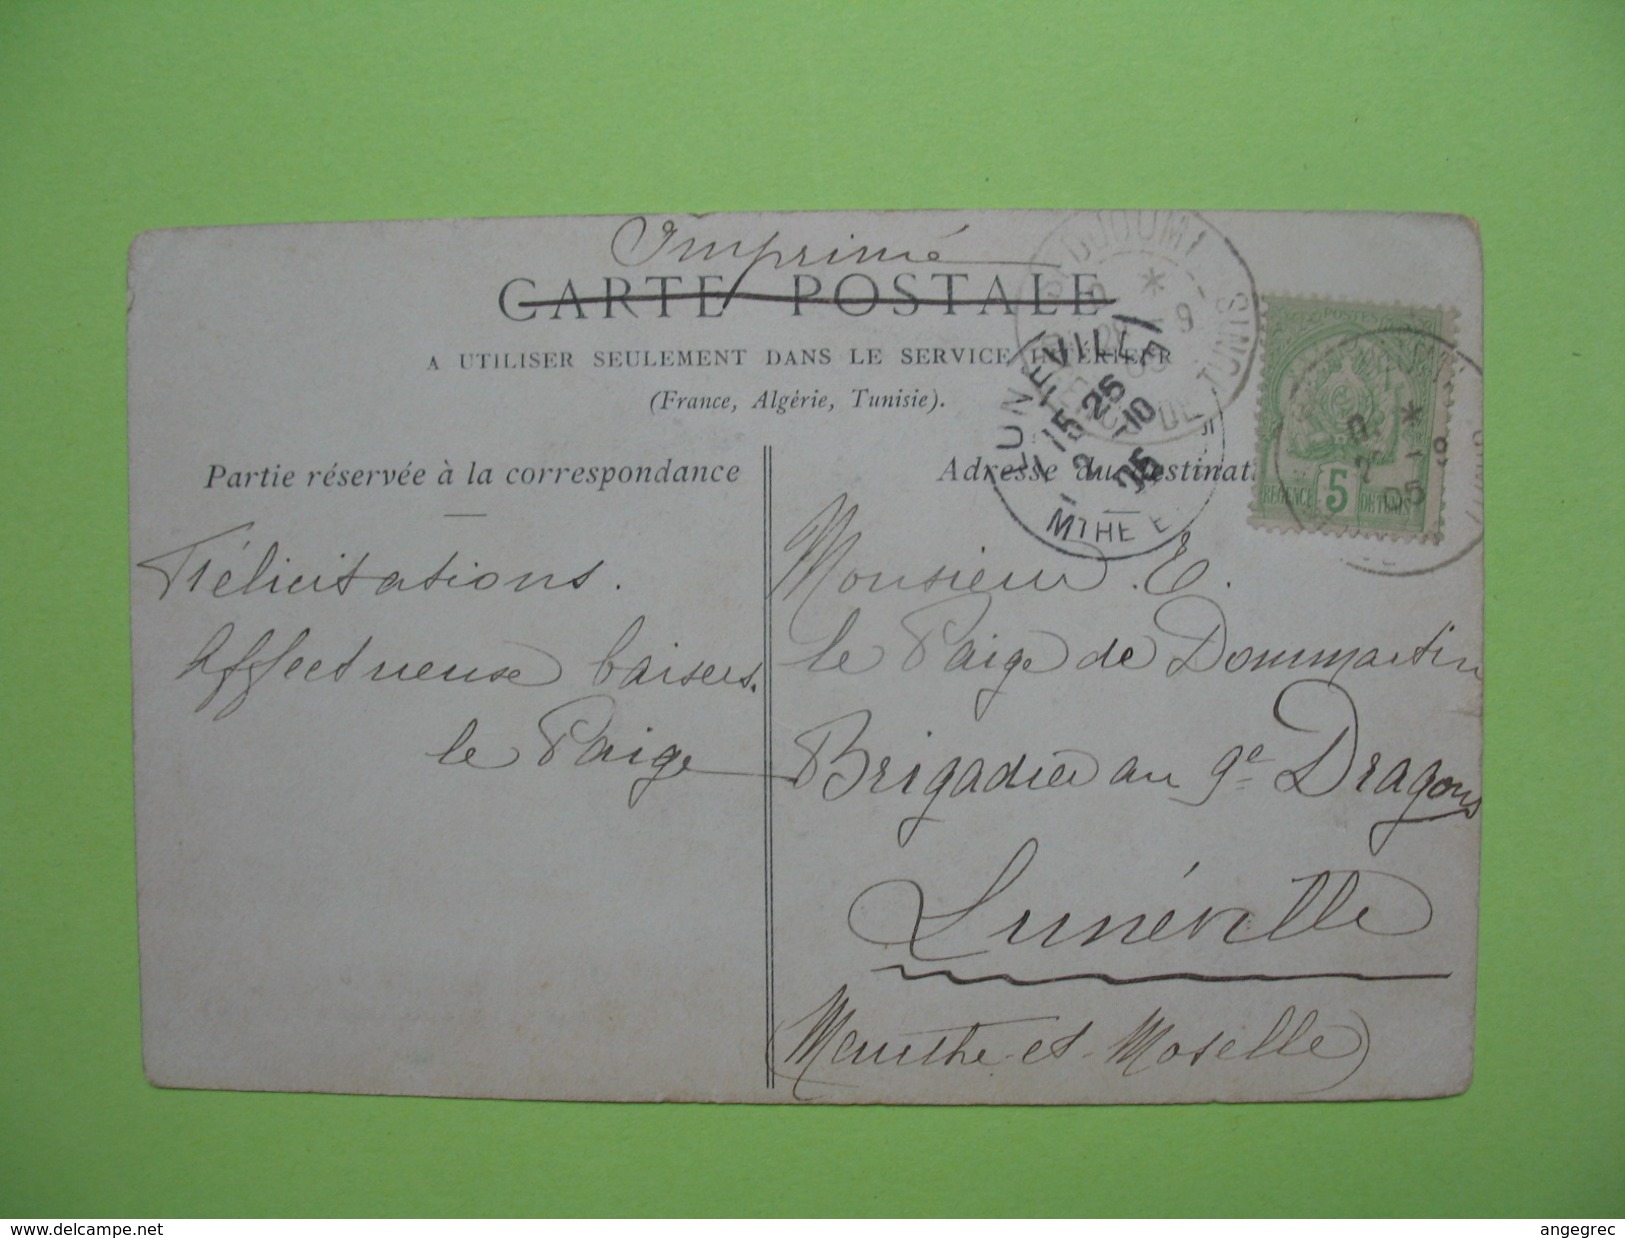 Imprimé
CARTE POSTALE
A UTILISER SEULEMENT DANS LE SERVICE INTÉRIEUR
(France, Algérie, Tunisie).
Partie réservée à la correspondance
Adresse du destinat
Félicitations.
Affectueuse baisers.
le Paige
Monsieur E.
le Paige de Dommartin
Brigadier au 9e Dragons
Lunéville
(Meurthe et Moselle)
DJOUMI
TUNIS
LUNEVILLE
15 25
2 -10
05
MTHE E
POSTES
5
REGENCE DE TUNIS
05
www.delcampe.net
angegrec